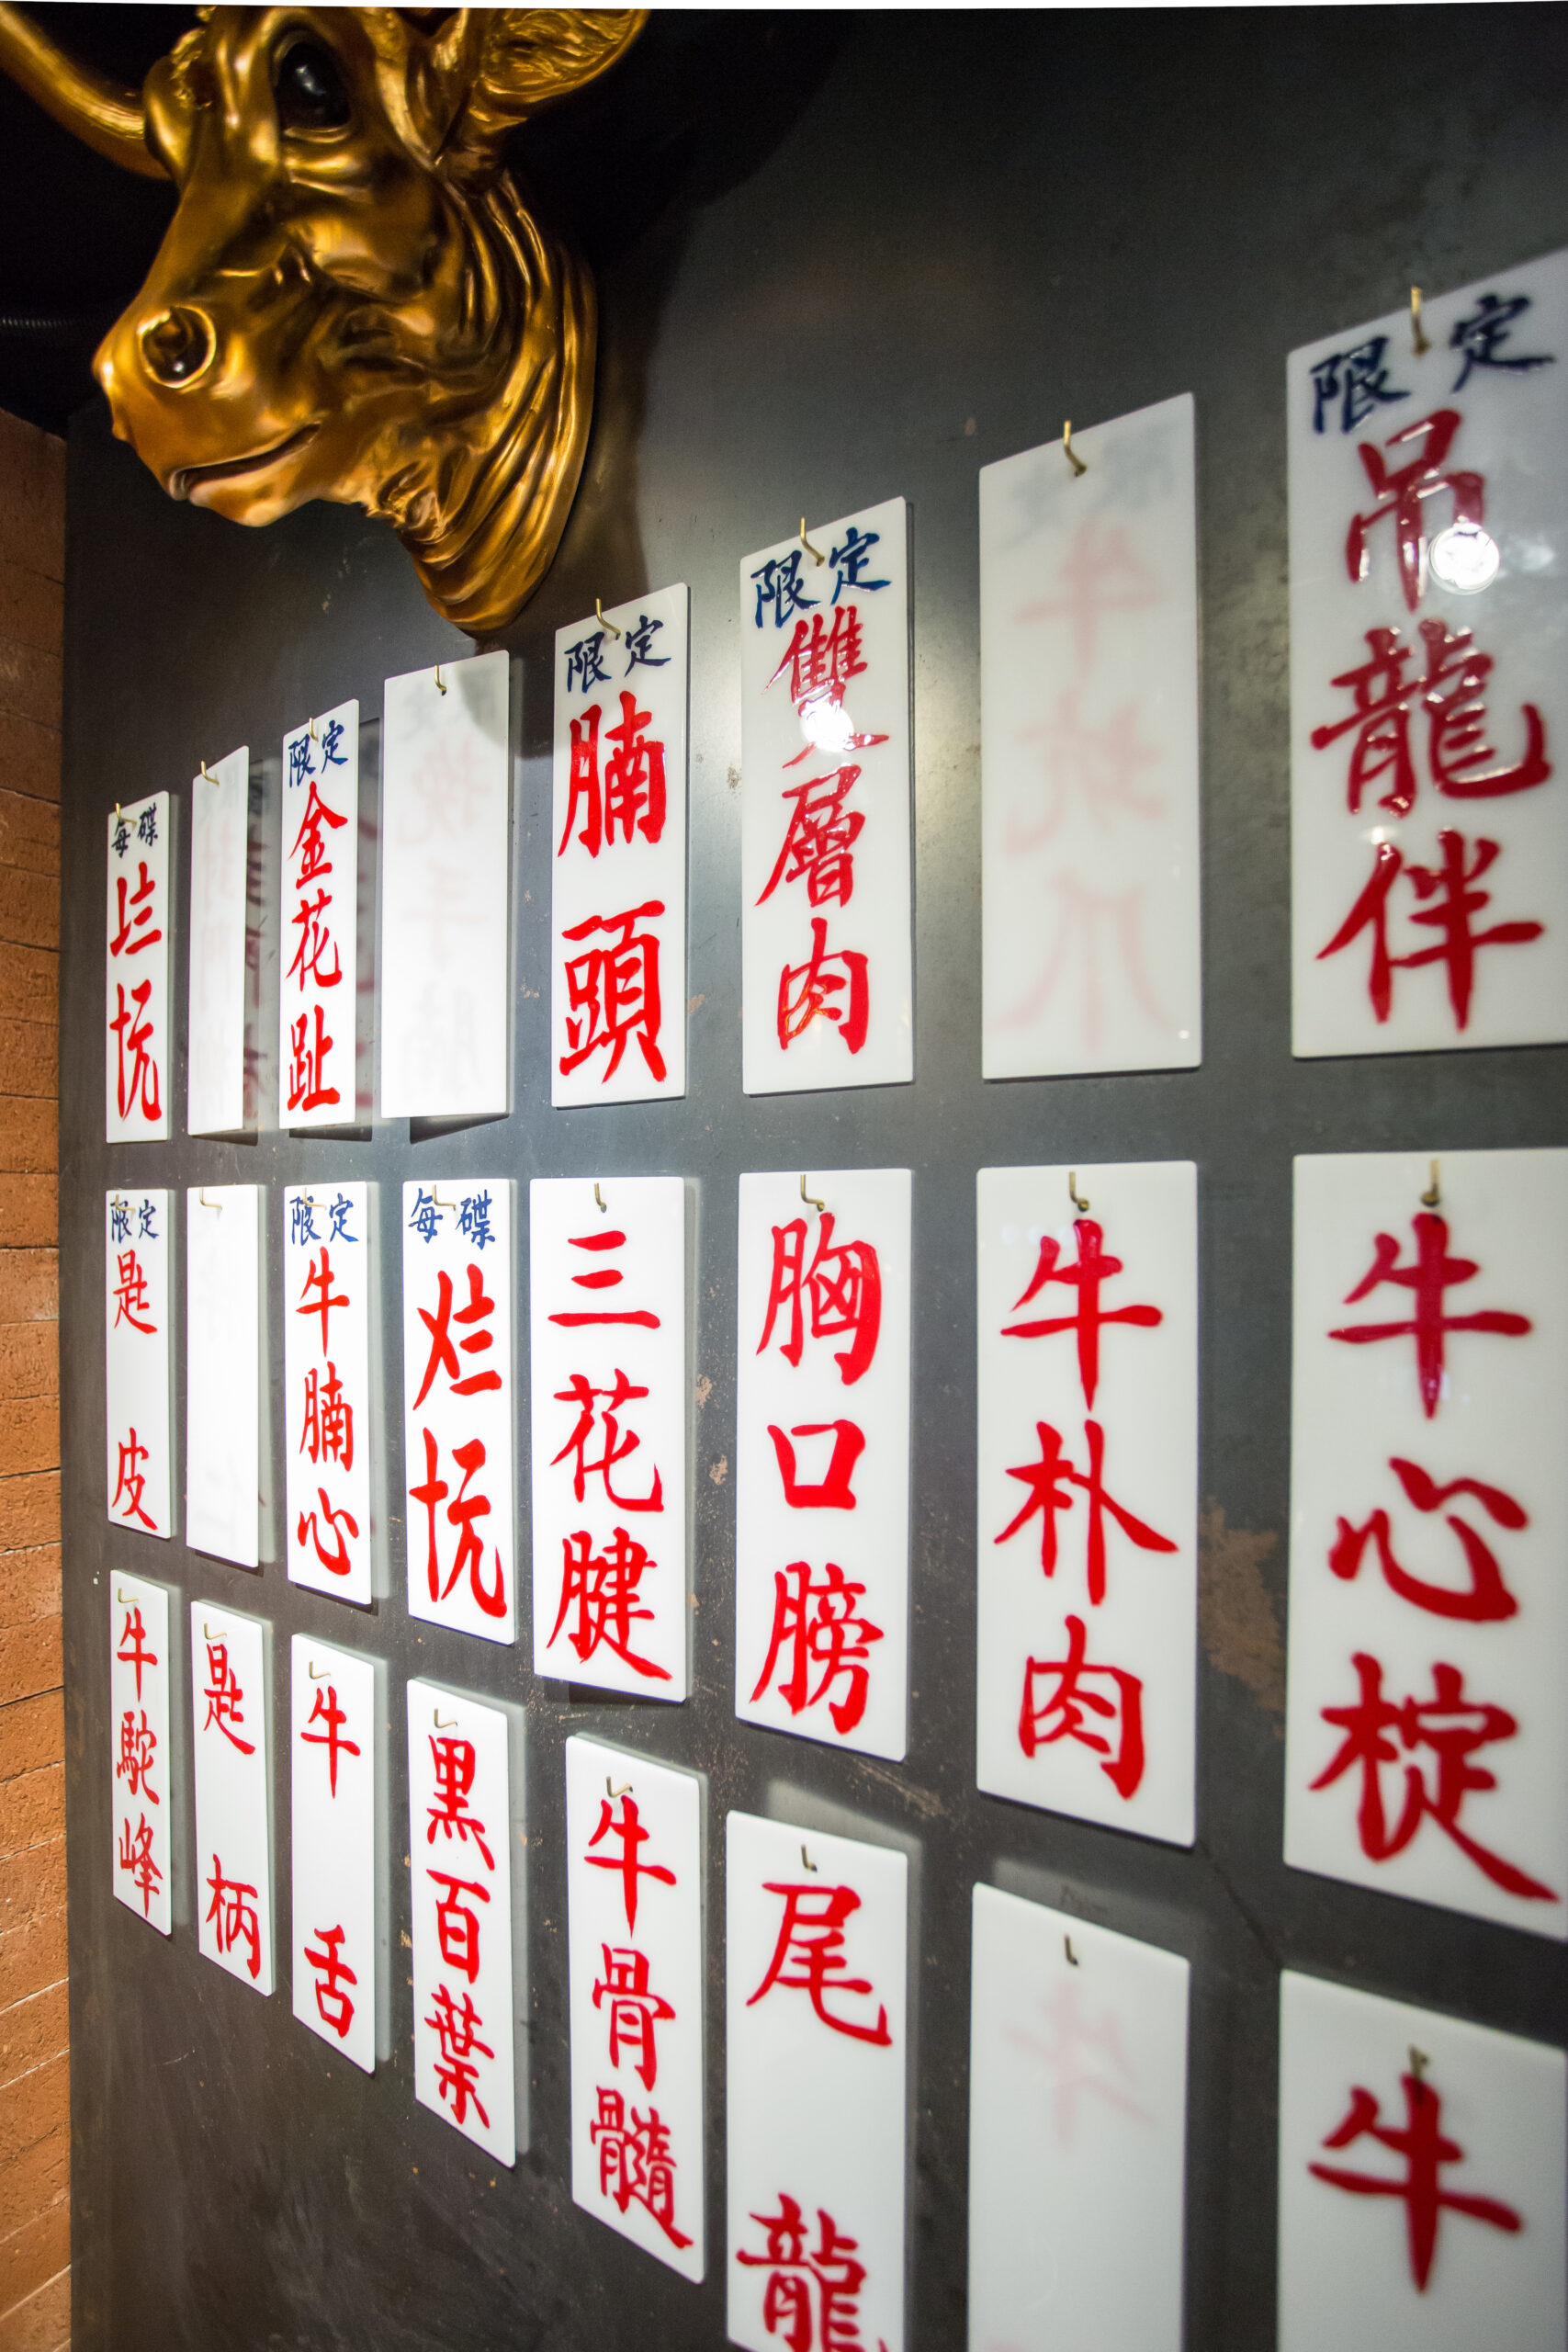 每碟
烂坑
限定
金花趾
限定
腩頭
限定
雙層肉
限定
吊龍伴
限定
匙皮
限定
牛腩心
每碟
烂坑
三花腱
胸口膀
牛朴肉
牛心椗
牛駝峰
匙柄
牛舌
黑百葉
牛骨髓
尾龍
牛